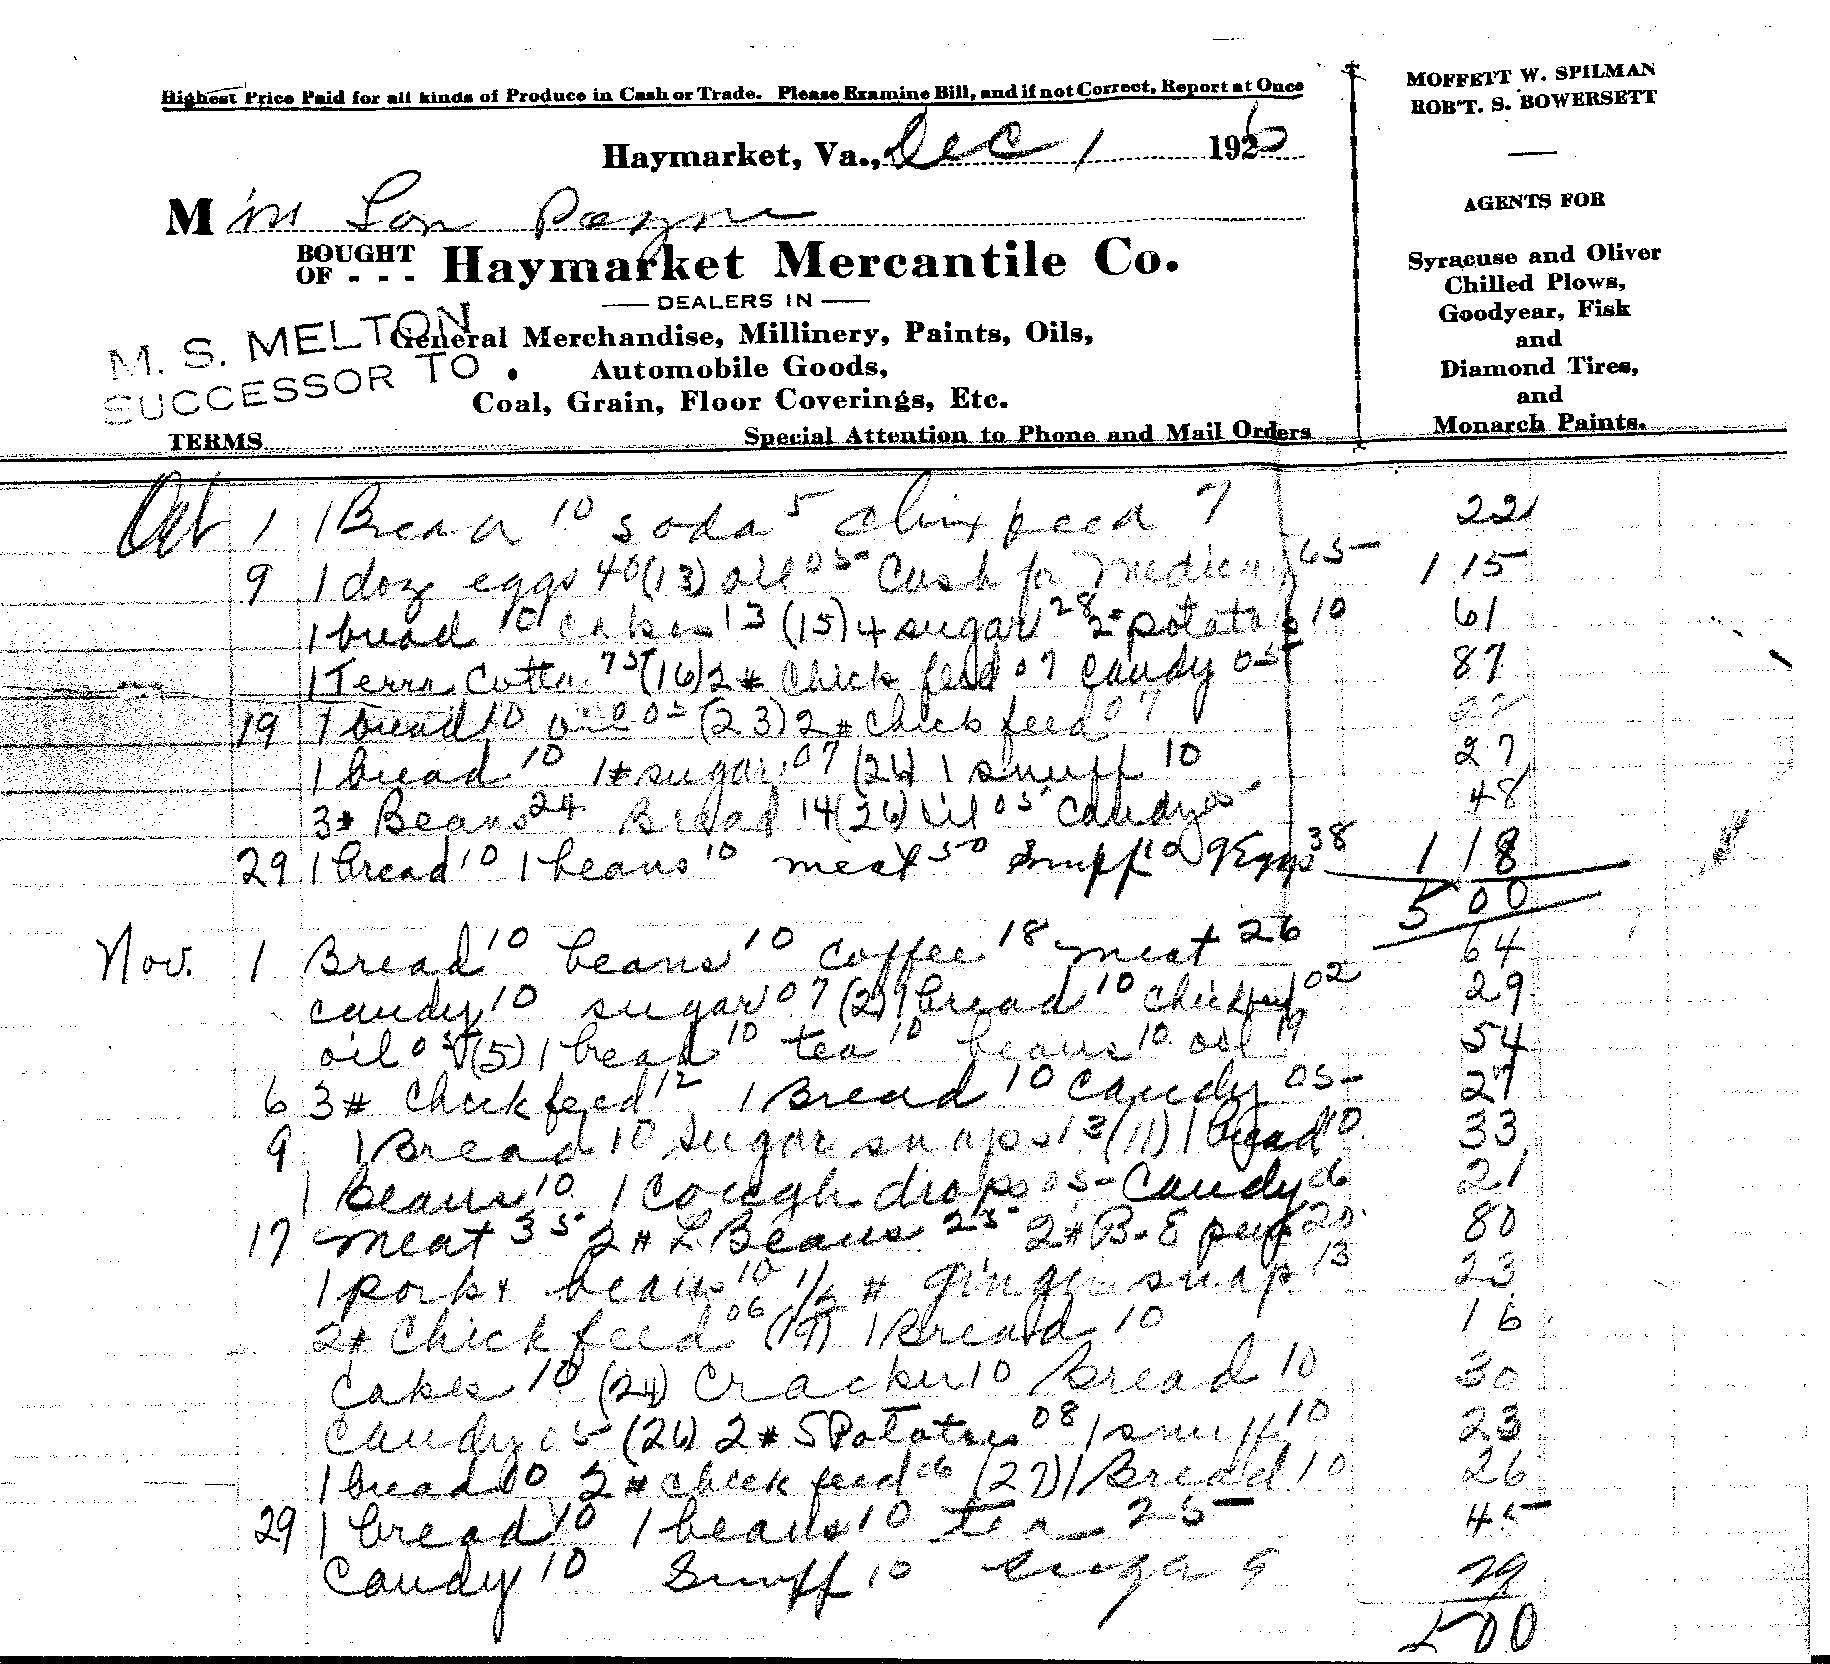 Highest Price Paid for all kinds of Produce in Cash or Trade. Please Examine Bill, and if not Correct, Report at Once
Haymarket, Va., Dec 1 1926
M
BOUGHT OF - - - Haymarket Mercantile Co.
DEALERS IN
M. S. MELTON
SUCCESSOR TO
General Merchandise, Millinery, Paints, Oils,
Automobile Goods,
Coal, Grain, Floor Coverings, Etc.
TERMS Special Attention to Phone and Mail Orders
MOFFETT W. SPILMAN
ROB'T. S. BOWERSETT
AGENTS FOR
Syracuse and Oliver
Chilled Plows,
Goodyear, Fisk
and
Diamond Tires,
and
Monarch Paints.
Oct 1 1 Bread 10 soda 5 7 22
9 1 doz eggs 40 (13) oil 05 Cash for 65 1 15
1 bread 10 cakes 13 (15) 4 sugar 28 10 61
1 Terra Cotta 75 (16) 2# Chick feed 07 Candy 05 87
19 1 bread 10 oil 05 (23) 2# Chick feed 07 22
1 bread 10 1# sugar 07 (24) 1 snuff 10 27
3# Beans 24 Bread 14 (26) oil 05 Candy 05 48
29 1 bread 10 1 beans 10 meat 50 Snuff 10 9 Eggs 38 1 18
5 00
Nov. 1 Bread 10 beans 10 coffee 18 meat 26 64
candy 10 sugar 07 (2) 1 bread 10 02 29
oil 05 (5) 1 bread 10 tea 10 beans 10 oil 19 54
6 3# Chick feed 12 1 Bread 10 Candy 05 27
9 1 Bread 10 sugar snaps 13 (11) 1 bread 10 33
1 Beans 10 1 Cough drops 05 Candy 06 21
17 Meat 35 2# L Beans 25 2# B. E peas 20 80
1 pork & beans 10 1/2 # ginger snap 13 23
2# Chick feed 06 (19) 1 Bread 10 16
Cakes 10 (24) Cracker 10 Bread 10 30
Candy 05 (26) 2# S Potatoes 08 1 snuff 10 23
1 bread 10 2# chick feed 06 (27) 1 Bread 10 26
29 1 bread 10 1 beans 10 tea 25 45
Candy 10 Snuff 10 Suga 9 29
5 00